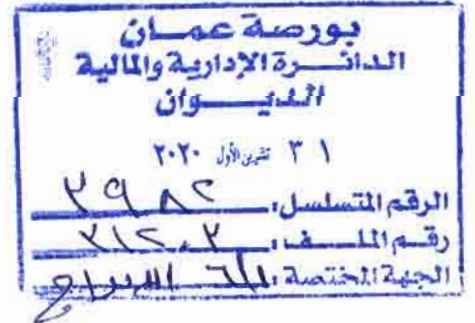 بورصة عمان
الدائرة الإدارية والمالية
الديوان
٣١ تشرين الأول ٢٠٢٠
الرقم المتسلسل: ٣٩٨٢
رقم الملف:
الجهة المختصة: الإدراج